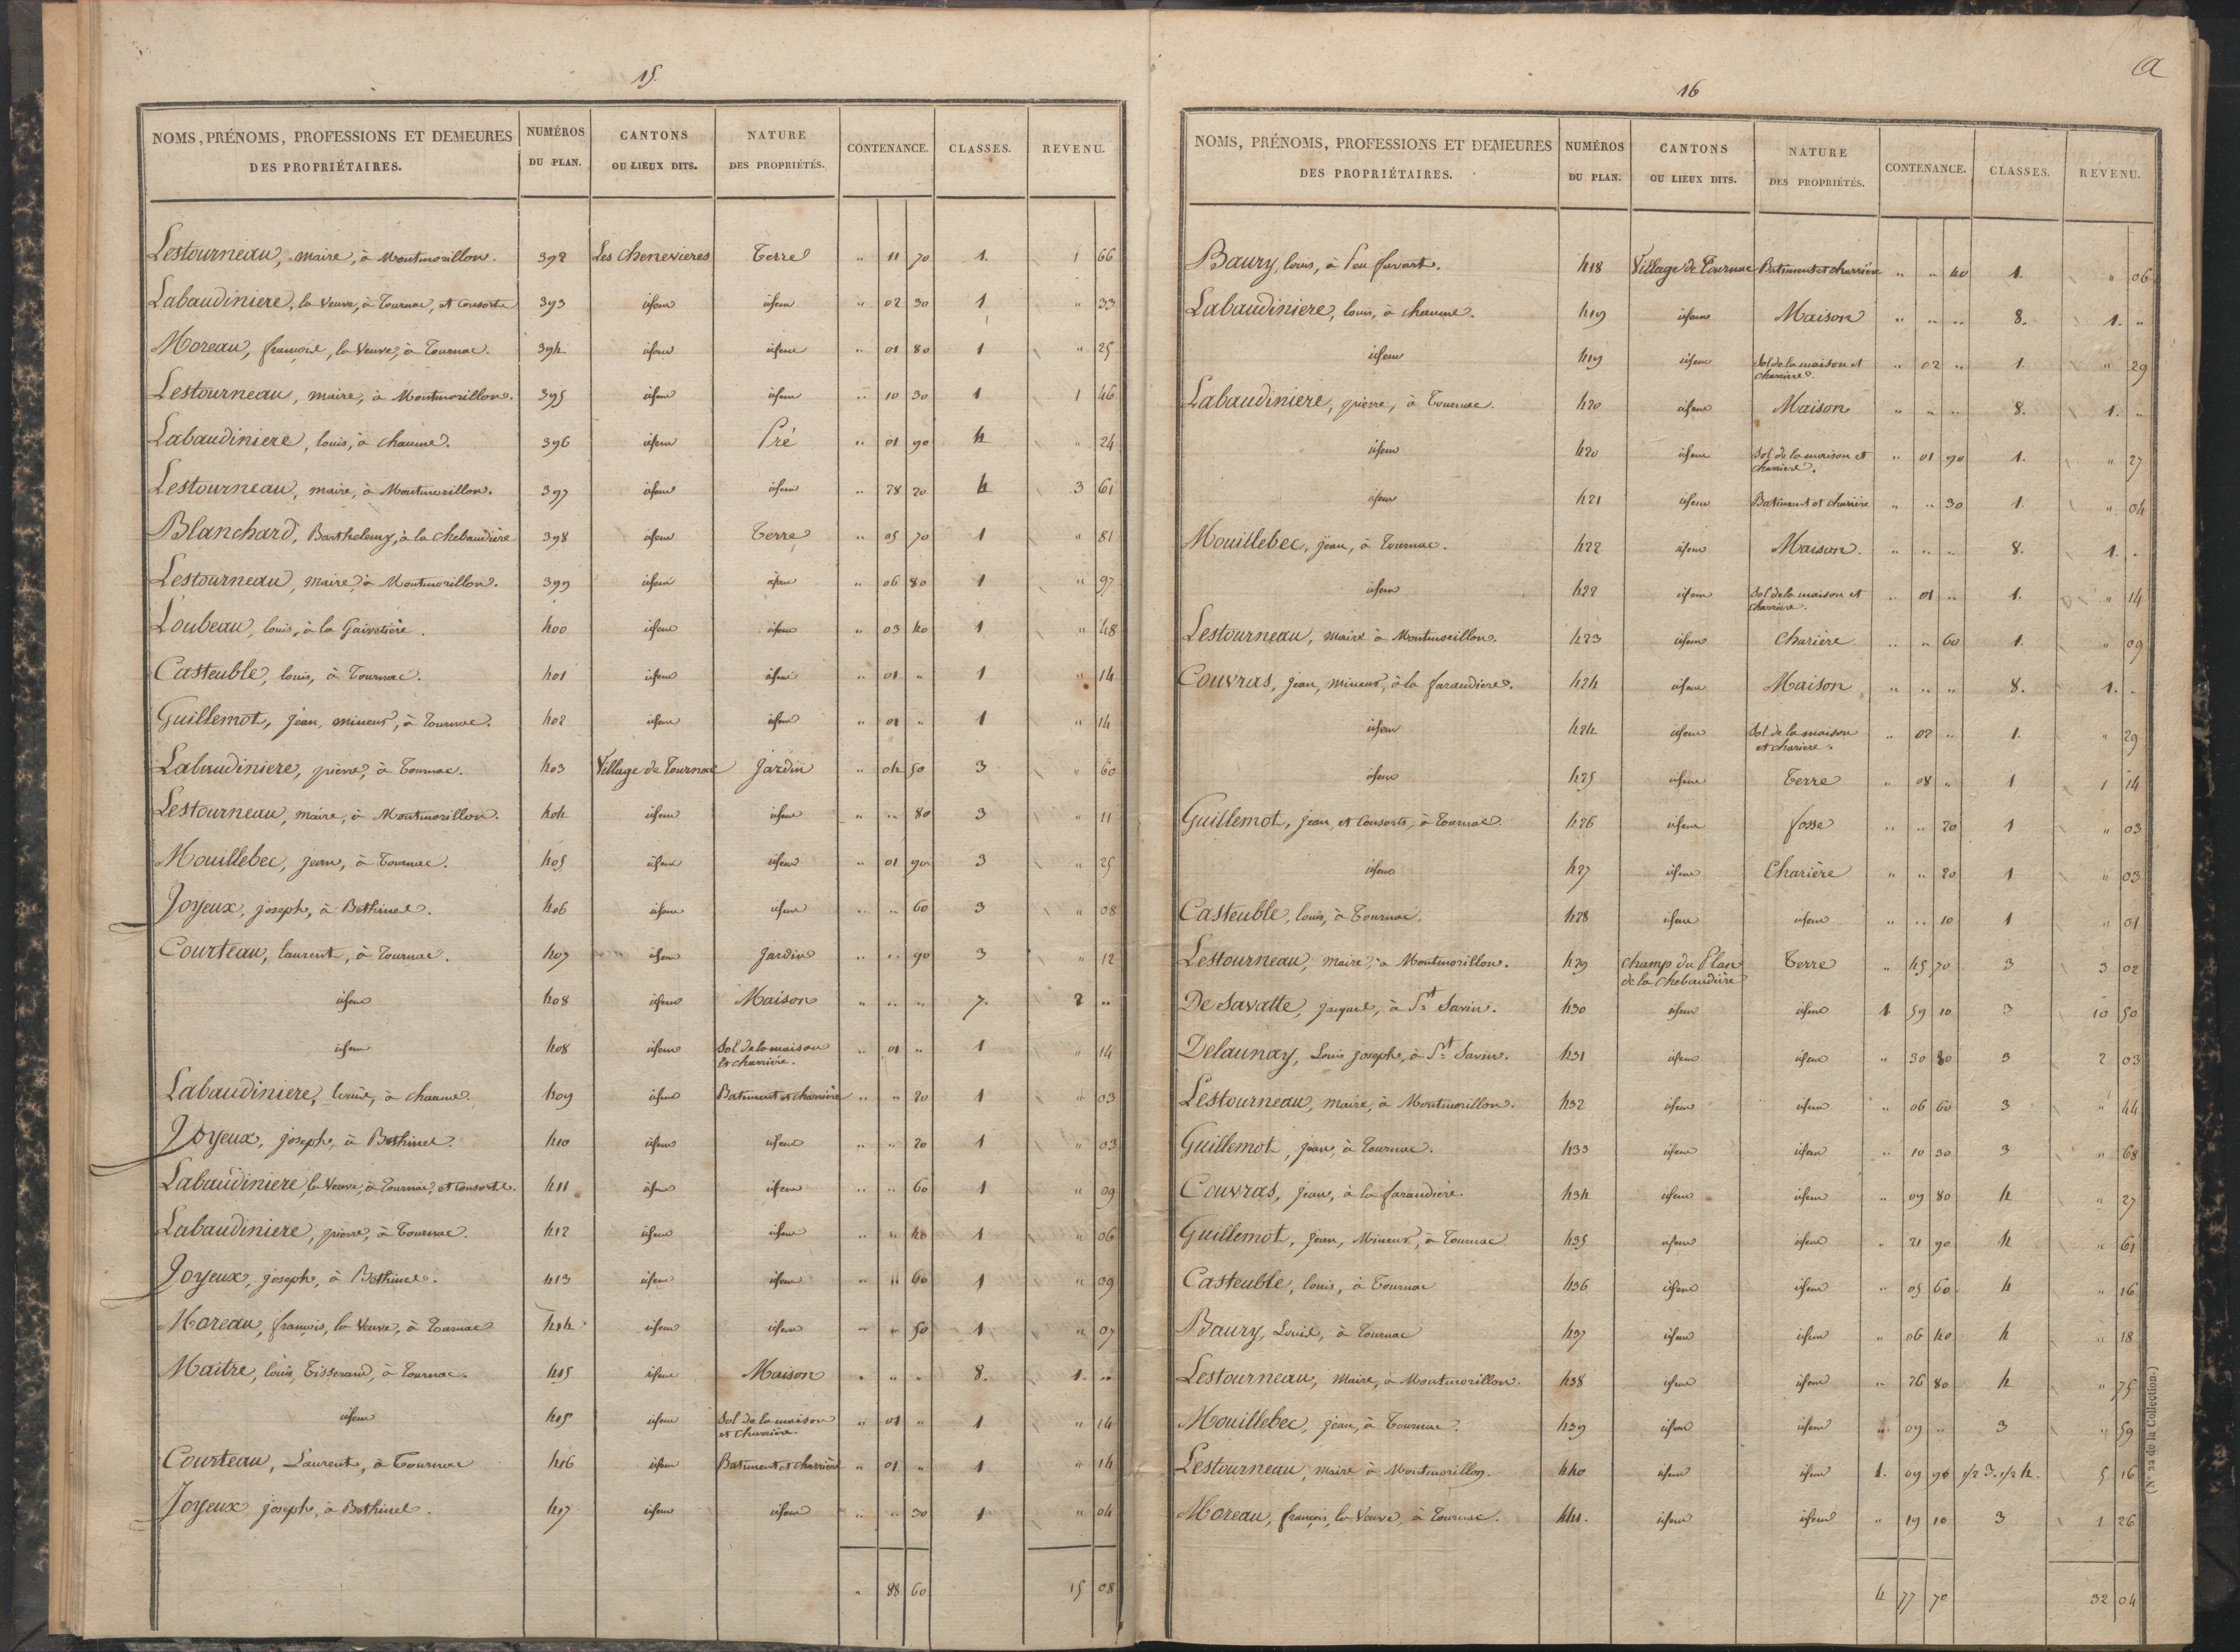 15.
NOMS, PRÉNOMS, PROFESSIONS ET DEMEURES DES PROPRIÉTAIRES. NUMÉROS DU PLAN. CANTONS OU LIEUX DITS. NATURE DES PROPRIÉTÉS. CONTENANCE. CLASSES. REVENU.
Lestourneau, maire, à Montmorillon. 392 Les chenevieres Terre " 11 70 1. 1 66
Labaudiniere, la Veuve, à Tournac, et Consorts 393 idem idem " 02 30 1 " 33
Moreau, françois, la Veuve, à Tournac. 394 idem idem " 01 80 1 " 25
Lestourneau, maire, à Montmorillon. 395 idem idem " 10 30 1 1 46
Labaudiniere, louis, à chaume. 396 idem Pré " 01 90 4 " 24
Lestourneau, maire, à Montmorillon. 397 idem idem " 28 20 4 3 61
Blanchard, Barthelemy, à la chebaudière 398 idem Terre " 05 70 1 " 81
Lestourneau, maire, à Montmorillon. 399 idem idem " 06 80 1 " 97
Loubeau, louis, à la Gaivetière. 400 idem idem " 03 40 1 " 48
Casteuble, louis, à Tournac. 401 idem idem " 01 " 1 " 14
Guillemot, jean, mineur, à Tournac. 402 idem idem " 01 " 1 " 14
Labaudiniere, pierre, à Tournac. 403 Village de Tournac Jardin " 04 50 3 " 60
Lestourneau, maire, à Montmorillon. 404 idem idem " " 80 3 " 11
Mouillebec, jean, à Tournac. 405 idem idem " 01 90 3 " 25
Joyeux, joseph, à Bethines. 406 idem idem " " 60 3 " 08
Courteau, laurent, à Tournac. 407 idem Jardin " " 90 3 " 12
idem 408 idem Maison " " " 7. 2 "
idem 408 idem Sol de la maison et charrière. " 01 " 1 " 14
Labaudiniere, louis, à chaume. 409 idem Batiment et charrière " " 20 1 " 03
Joyeux, joseph, à Bethines. 410 idem idem " " 20 1 " 03
Labaudiniere, la Veuve, à Tournac, et consorts. 411 idem idem " " 60 1 " 09
Labaudiniere, pierre, à Tournac. 412 idem idem " " 40 1 " 06
Joyeux, joseph, à Bethines. 413 idem idem " " 60 1 " 09
Moreau, françois, la Veuve, à Tournac 414 idem idem " " 50 1 " 07
Maitre, louis, Tisserand, à Tournac. 415 idem Maison " " " 8. 1. "
idem 415 idem Sol de la maison et charrière. " 01 " 1 " 14
Courteau, Laurent, à Tournac 416 idem Batiment et charrière " 01 " 1 " 14
Joyeux joseph, à Bethines. 417 idem idem " " 30 1 " 04
" 88 60 15 08
16
a
NOMS, PRÉNOMS, PROFESSIONS ET DEMEURES DES PROPRIÉTAIRES. NUMÉROS DU PLAN. CANTONS OU LIEUX DITS. NATURE DES PROPRIÉTÉS. CONTENANCE. CLASSES. REVENU.
Baury, louis, à Peu favart. 418 Village de Tournac Batiment et charrière " " 40 1. " 06
Labaudiniere, louis, à chaume. 419 idem Maison " " " 8. 1. "
idem 419 idem Sol de la maison et charriere. " 02 " 1. " 29
Labaudiniere, pierre, à Tournac. 420 idem Maison " " " 8. 1. "
idem 420 idem Sol de la maison et charriere. " 01 90 1. " 27
idem 421 idem Batiment et charrière " " 30 1. " 04
Mouillebec, jean, à Tournac. 422 idem Maison. " " " 8. 1. "
idem 422 idem Sol de la maison et charriere. " 01 " 1. " 14
Lestourneau, maire à Montmorillon. 423 idem Charière " " 60 1. " 09
Couvras, jean, mineur, à la farandiere. 424 idem Maison " " " 8. 1. "
idem 424 idem Sol de la maison et chariere. " 02 " 1. " 29
idem 425 idem Terre " 08 " 1 1 14
Guillemot, jean, et Consorts, à Tournac. 426 idem fosse " " 20 1 " 03
idem 427 idem Charière " " 20 1 " 03
Casteuble, louis, à Tournac. 428 idem idem " " 10 1 " 01
Lestourneau, maire, à Montmorillon. 429 champ du Plan de la Chebaudière Terre " 45 70 3 3 02
De Savatte, jacques, à St Savin. 430 idem idem 1 59 10 3 10 50
Delaunay, Louis Joseph, à St Savin. 431 idem idem " 30 80 3 2 03
Lestourneau, maire, à Montmorillon. 432 idem idem " 06 60 3 " 44
Guillemot, jean, à Tournac. 433 idem idem " 10 30 3 " 68
Couvras, jean, à la farandiere. 434 idem idem " 09 80 4 " 27
Guillemot, jean, Mineur, à Tournac 435 idem idem " 21 90 4 " 61
Casteuble, louis, à Tournac 436 idem idem " 05 60 4 " 16
Baury, Louis, à Tournac 437 idem idem " 06 40 4 " 18
Lestourneau, maire, à Montmorillon. 438 idem idem " 26 80 4 " 75
Mouillebec, jean, à Tournac. 439 idem idem " 09 " 3 " 59
Lestourneau, maire à Montmorillon. 440 idem idem 1. 09 90 1/2 3. 1/2 4. 5 16
Moreau, françois, la Veuve, à Tournac. 441. idem idem " 19 10 3 1 26
4 77 70 32 04
(N° 22 de la Collection.)